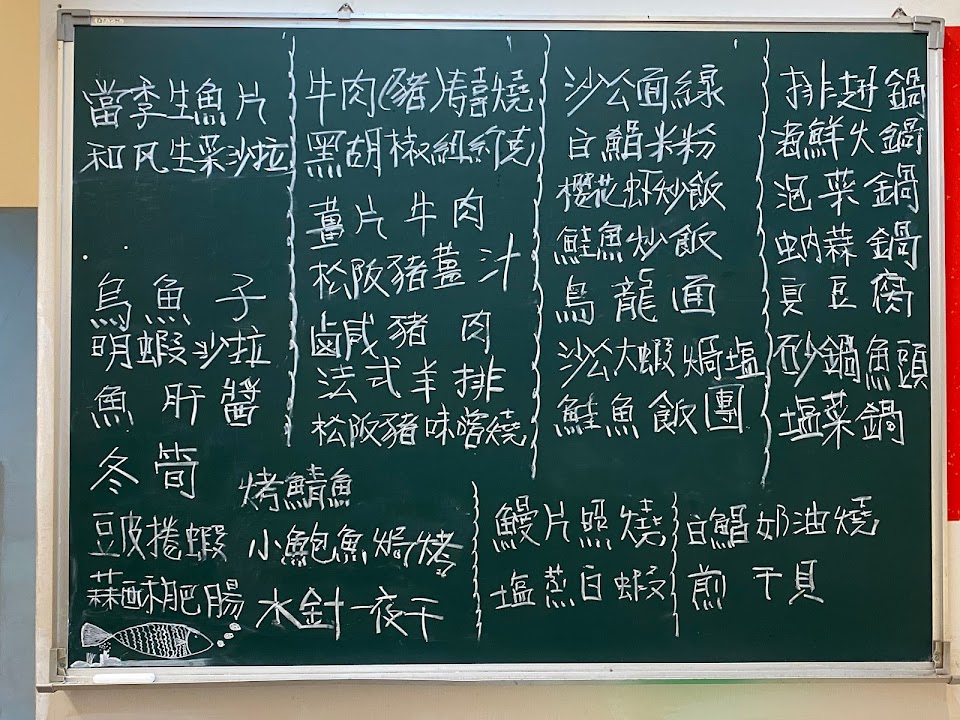 當季生魚片
和风生菜沙拉
烏魚子
明蝦沙拉
魚肝醬
冬筍
豆皮捲蝦
蒜酥肥腸
烤鯖魚
小鮑魚焗烤
水針一夜干
牛肉(豬)壽燒
黑胡椒組合
薑片牛肉
松阪豬薑汁
鹵咸豬肉
法式羊排
松阪豬味噌燒
沙公面線
白鯧米粉
櫻花虾炒飯
鮭魚炒飯
烏龍面
沙公大蝦焗塩
鮭魚飯團
鰻片照燒
塩蒸白蝦
白鯧奶油燒
煎干貝
排翅鍋
海鮮火鍋
泡菜鍋
蚋蒜鍋
臭豆腐
砂鍋魚頭
塩菜鍋